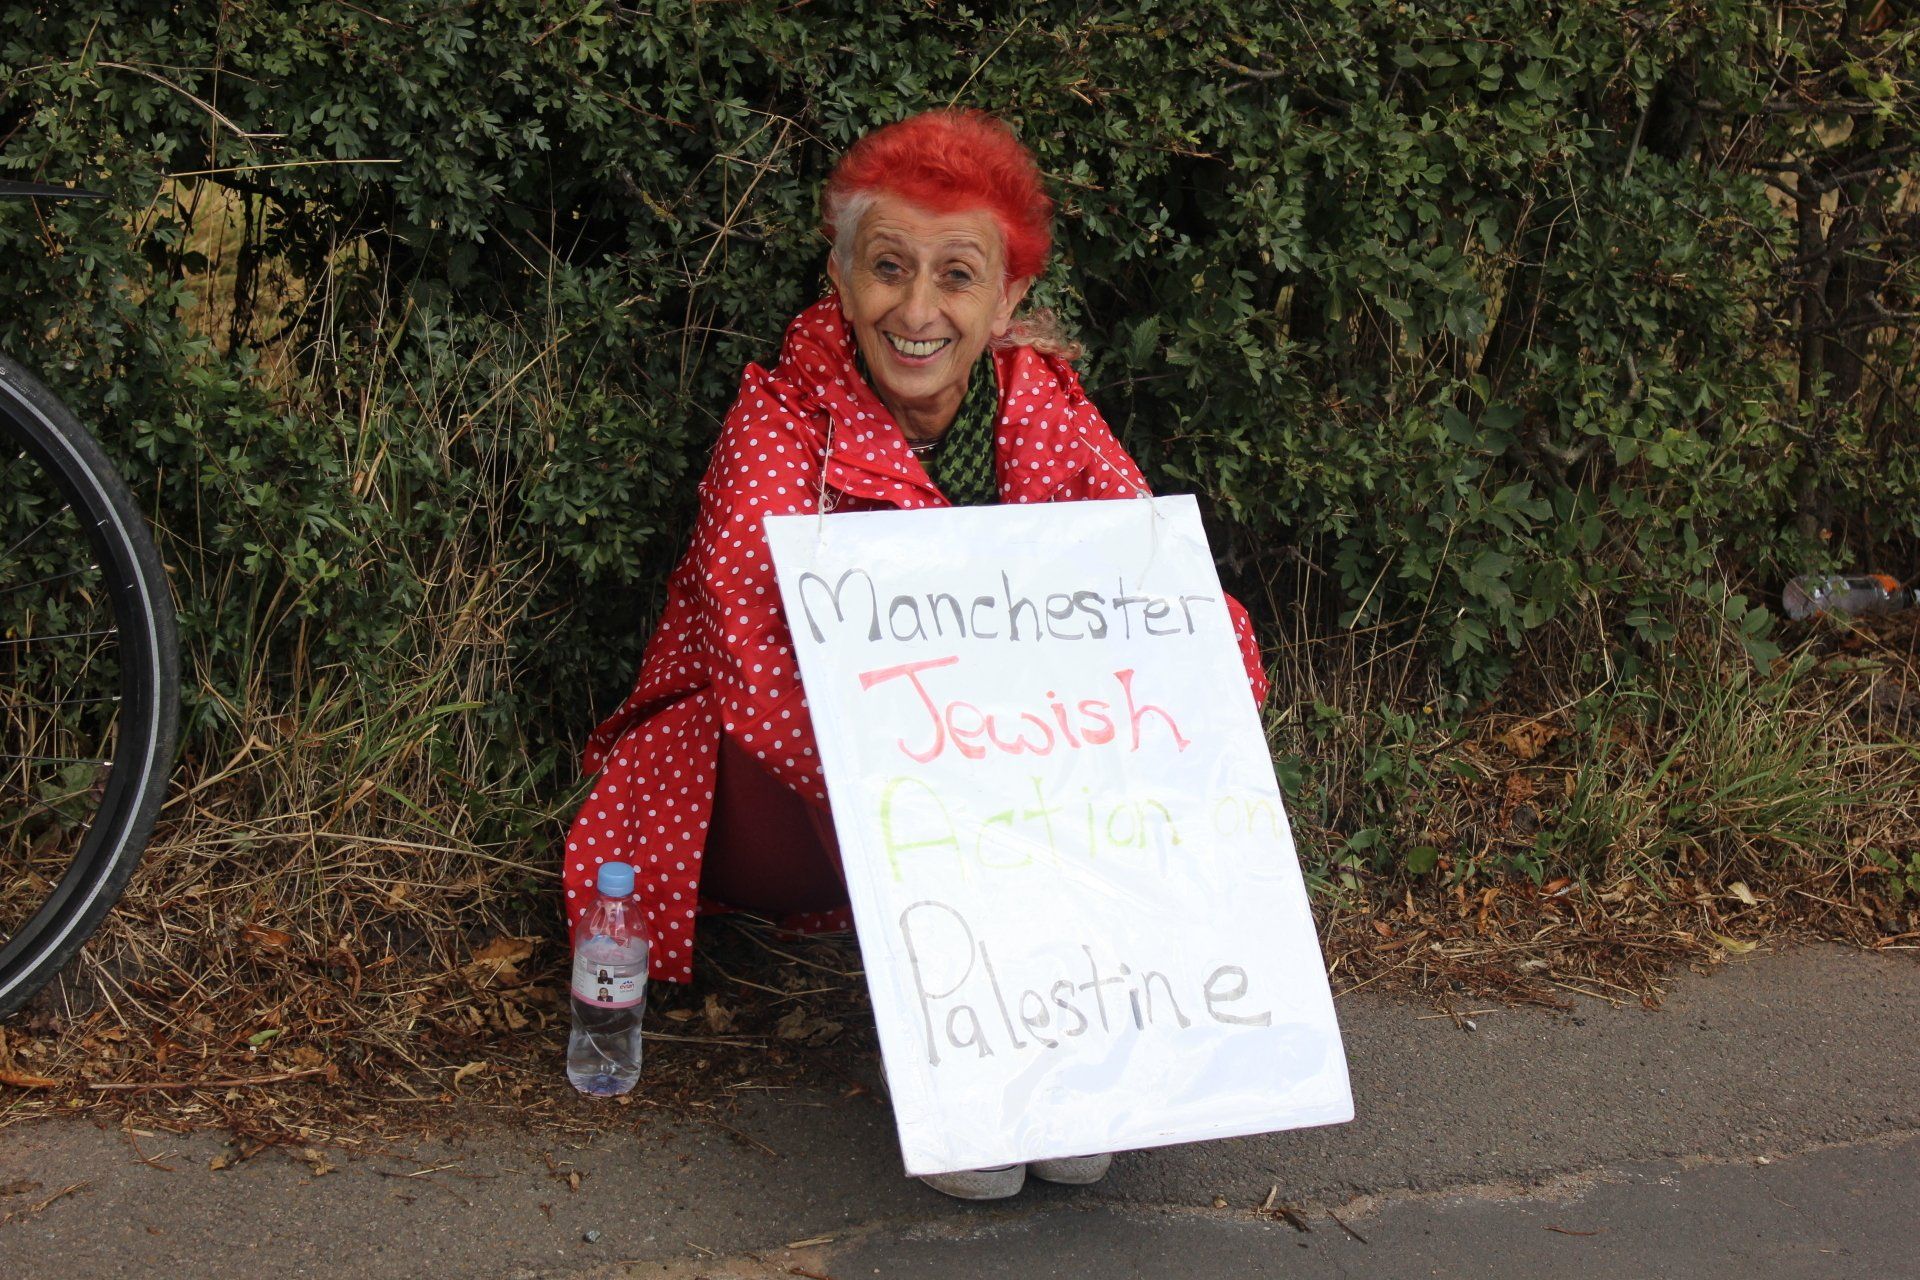 Manchester
Jewish
Action on
Palestine
evian